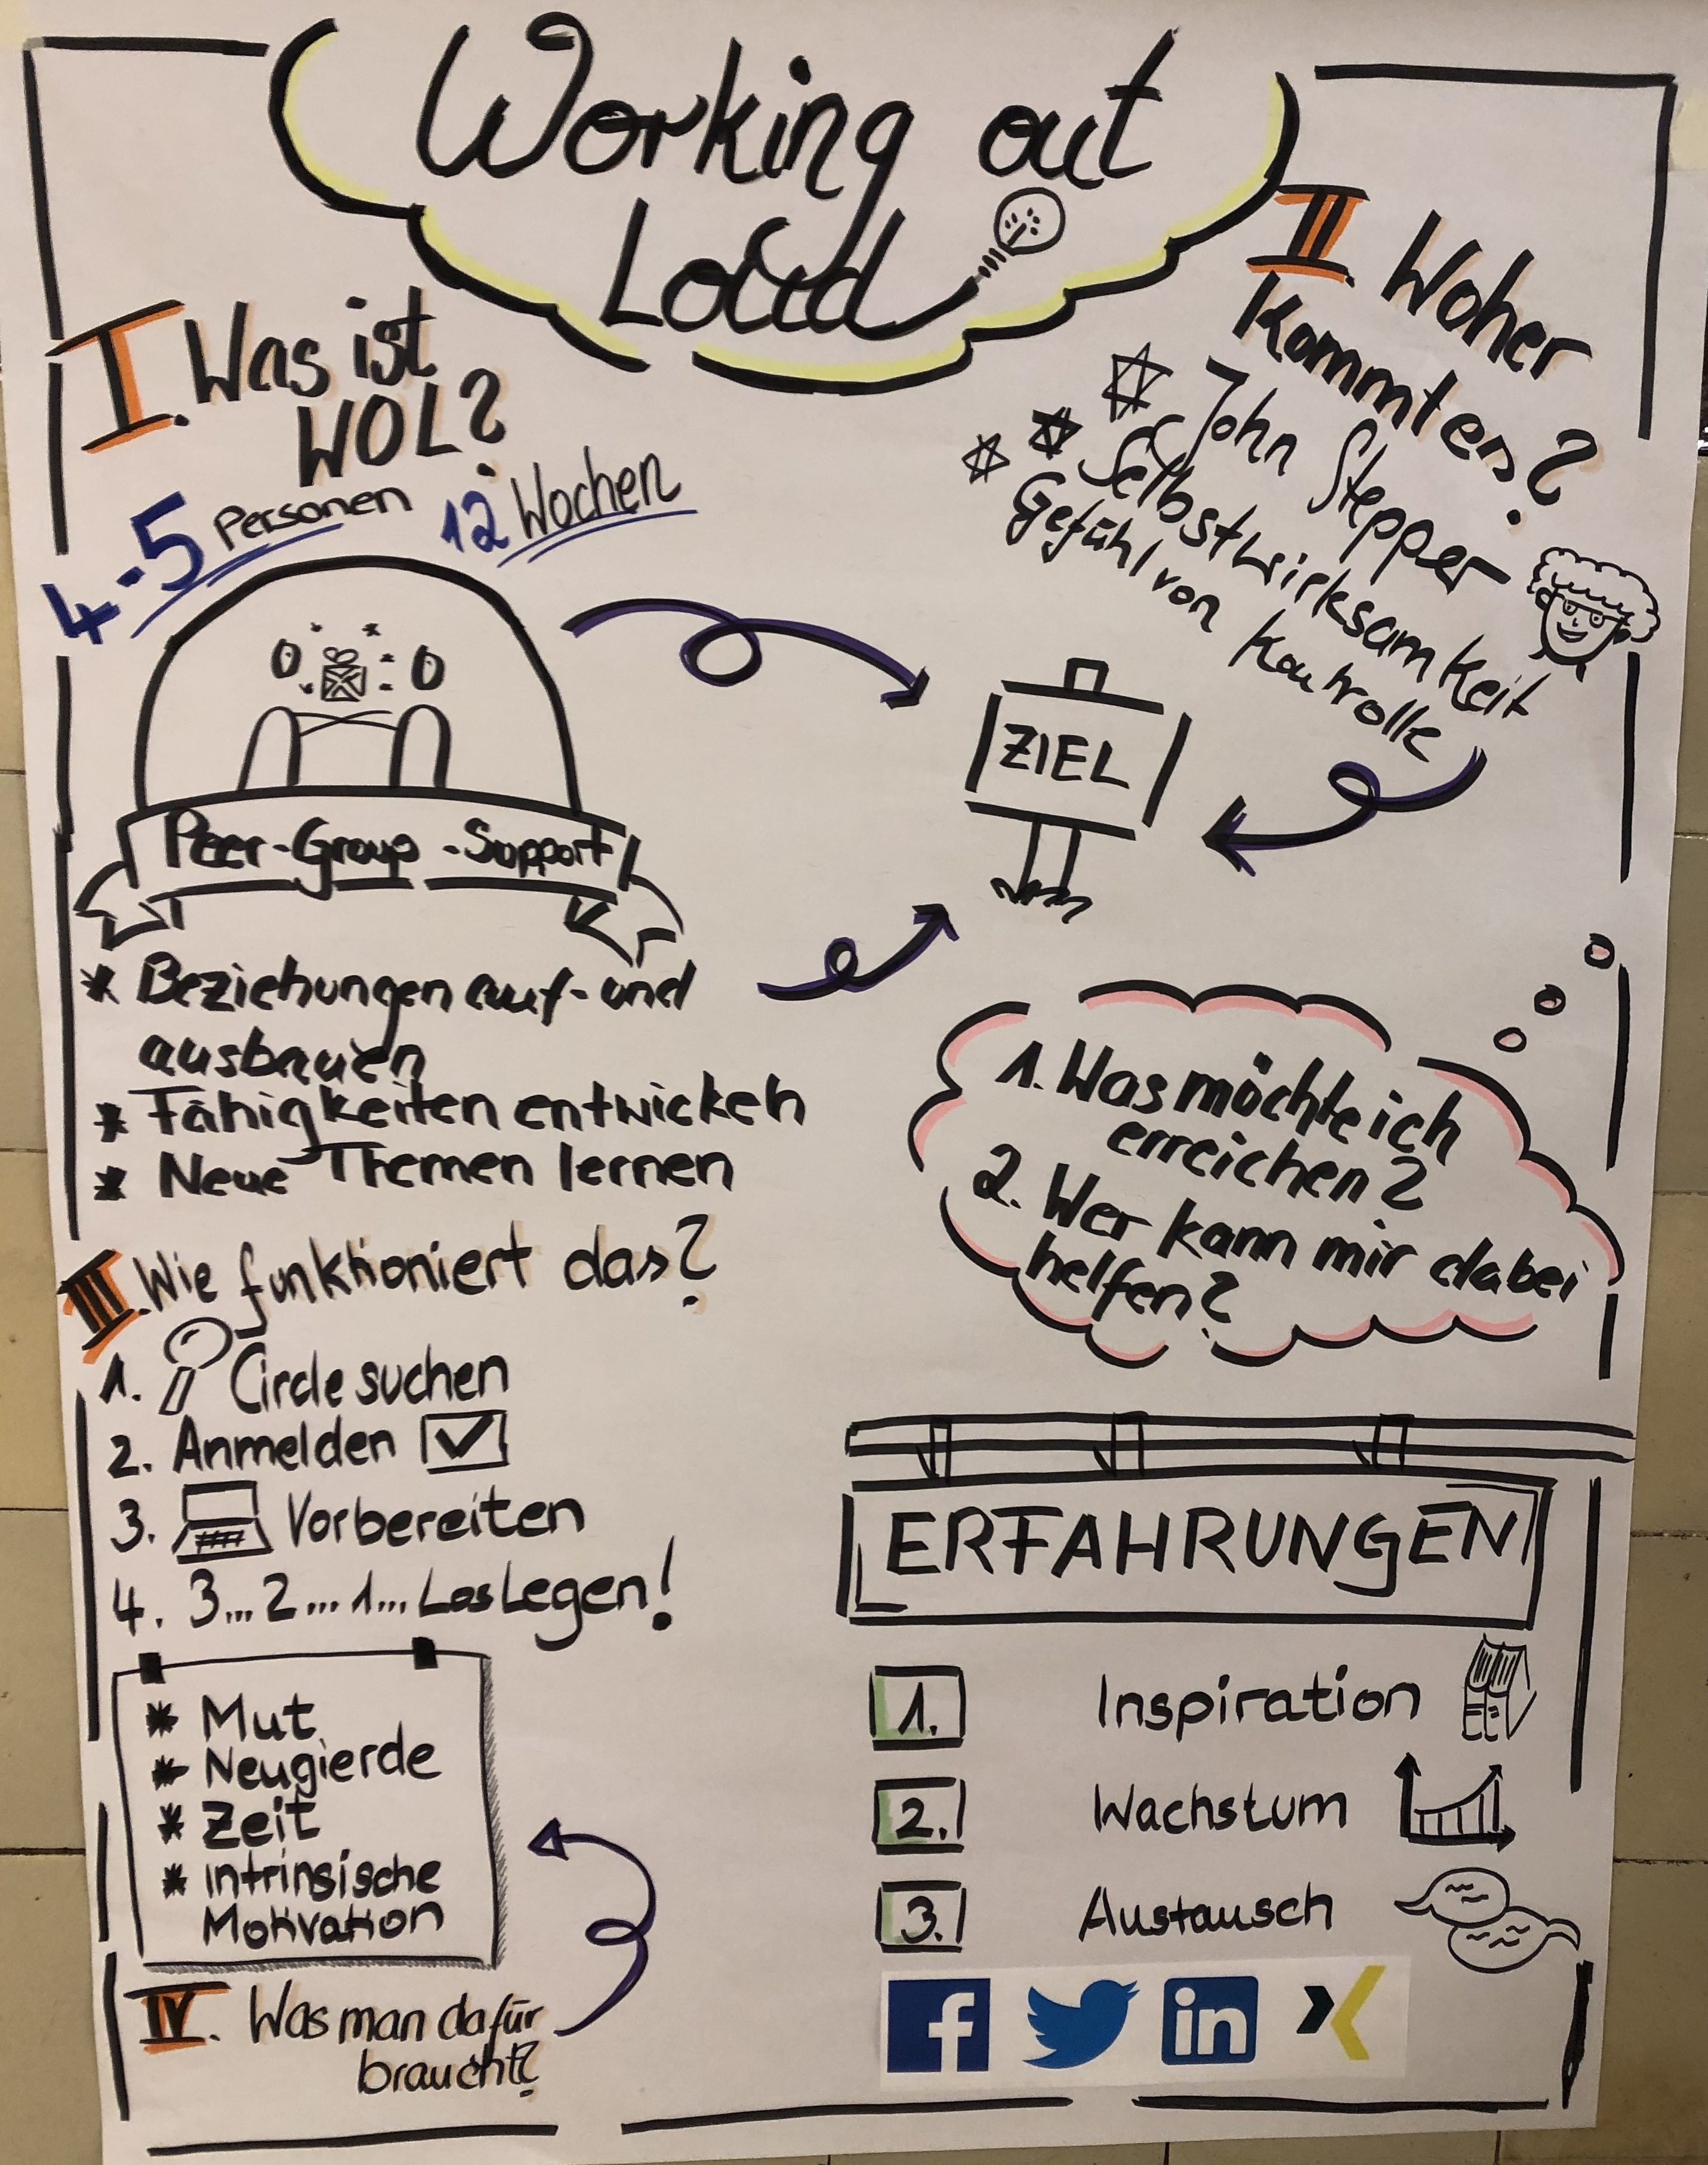 Working out
Loud
I. Was ist
WOL?
4-5 Personen
12 Wochen
Peer-Group-Support
* Beziehungen auf- und
ausbauen
* Fähigkeiten entwickeln
* Neue Themen lernen
II. Woher
kommt es?
John Stepper
Selbstwirksamkeit
Gefühl von Kontrolle
ZIEL
1. Was möchte ich
erreichen?
2. Wer kann mir dabei
helfen?
III. Wie funktioniert das?
1. Circle suchen
2. Anmelden
3. Vorbereiten
4. 3... 2... 1... Loslegen!
* Mut
* Neugierde
* Zeit
* Intrinsische
Motivation
IV. Was man dafür
braucht?
ERFAHRUNGEN
1. Inspiration
2. Wachstum
3. Austausch
f
in